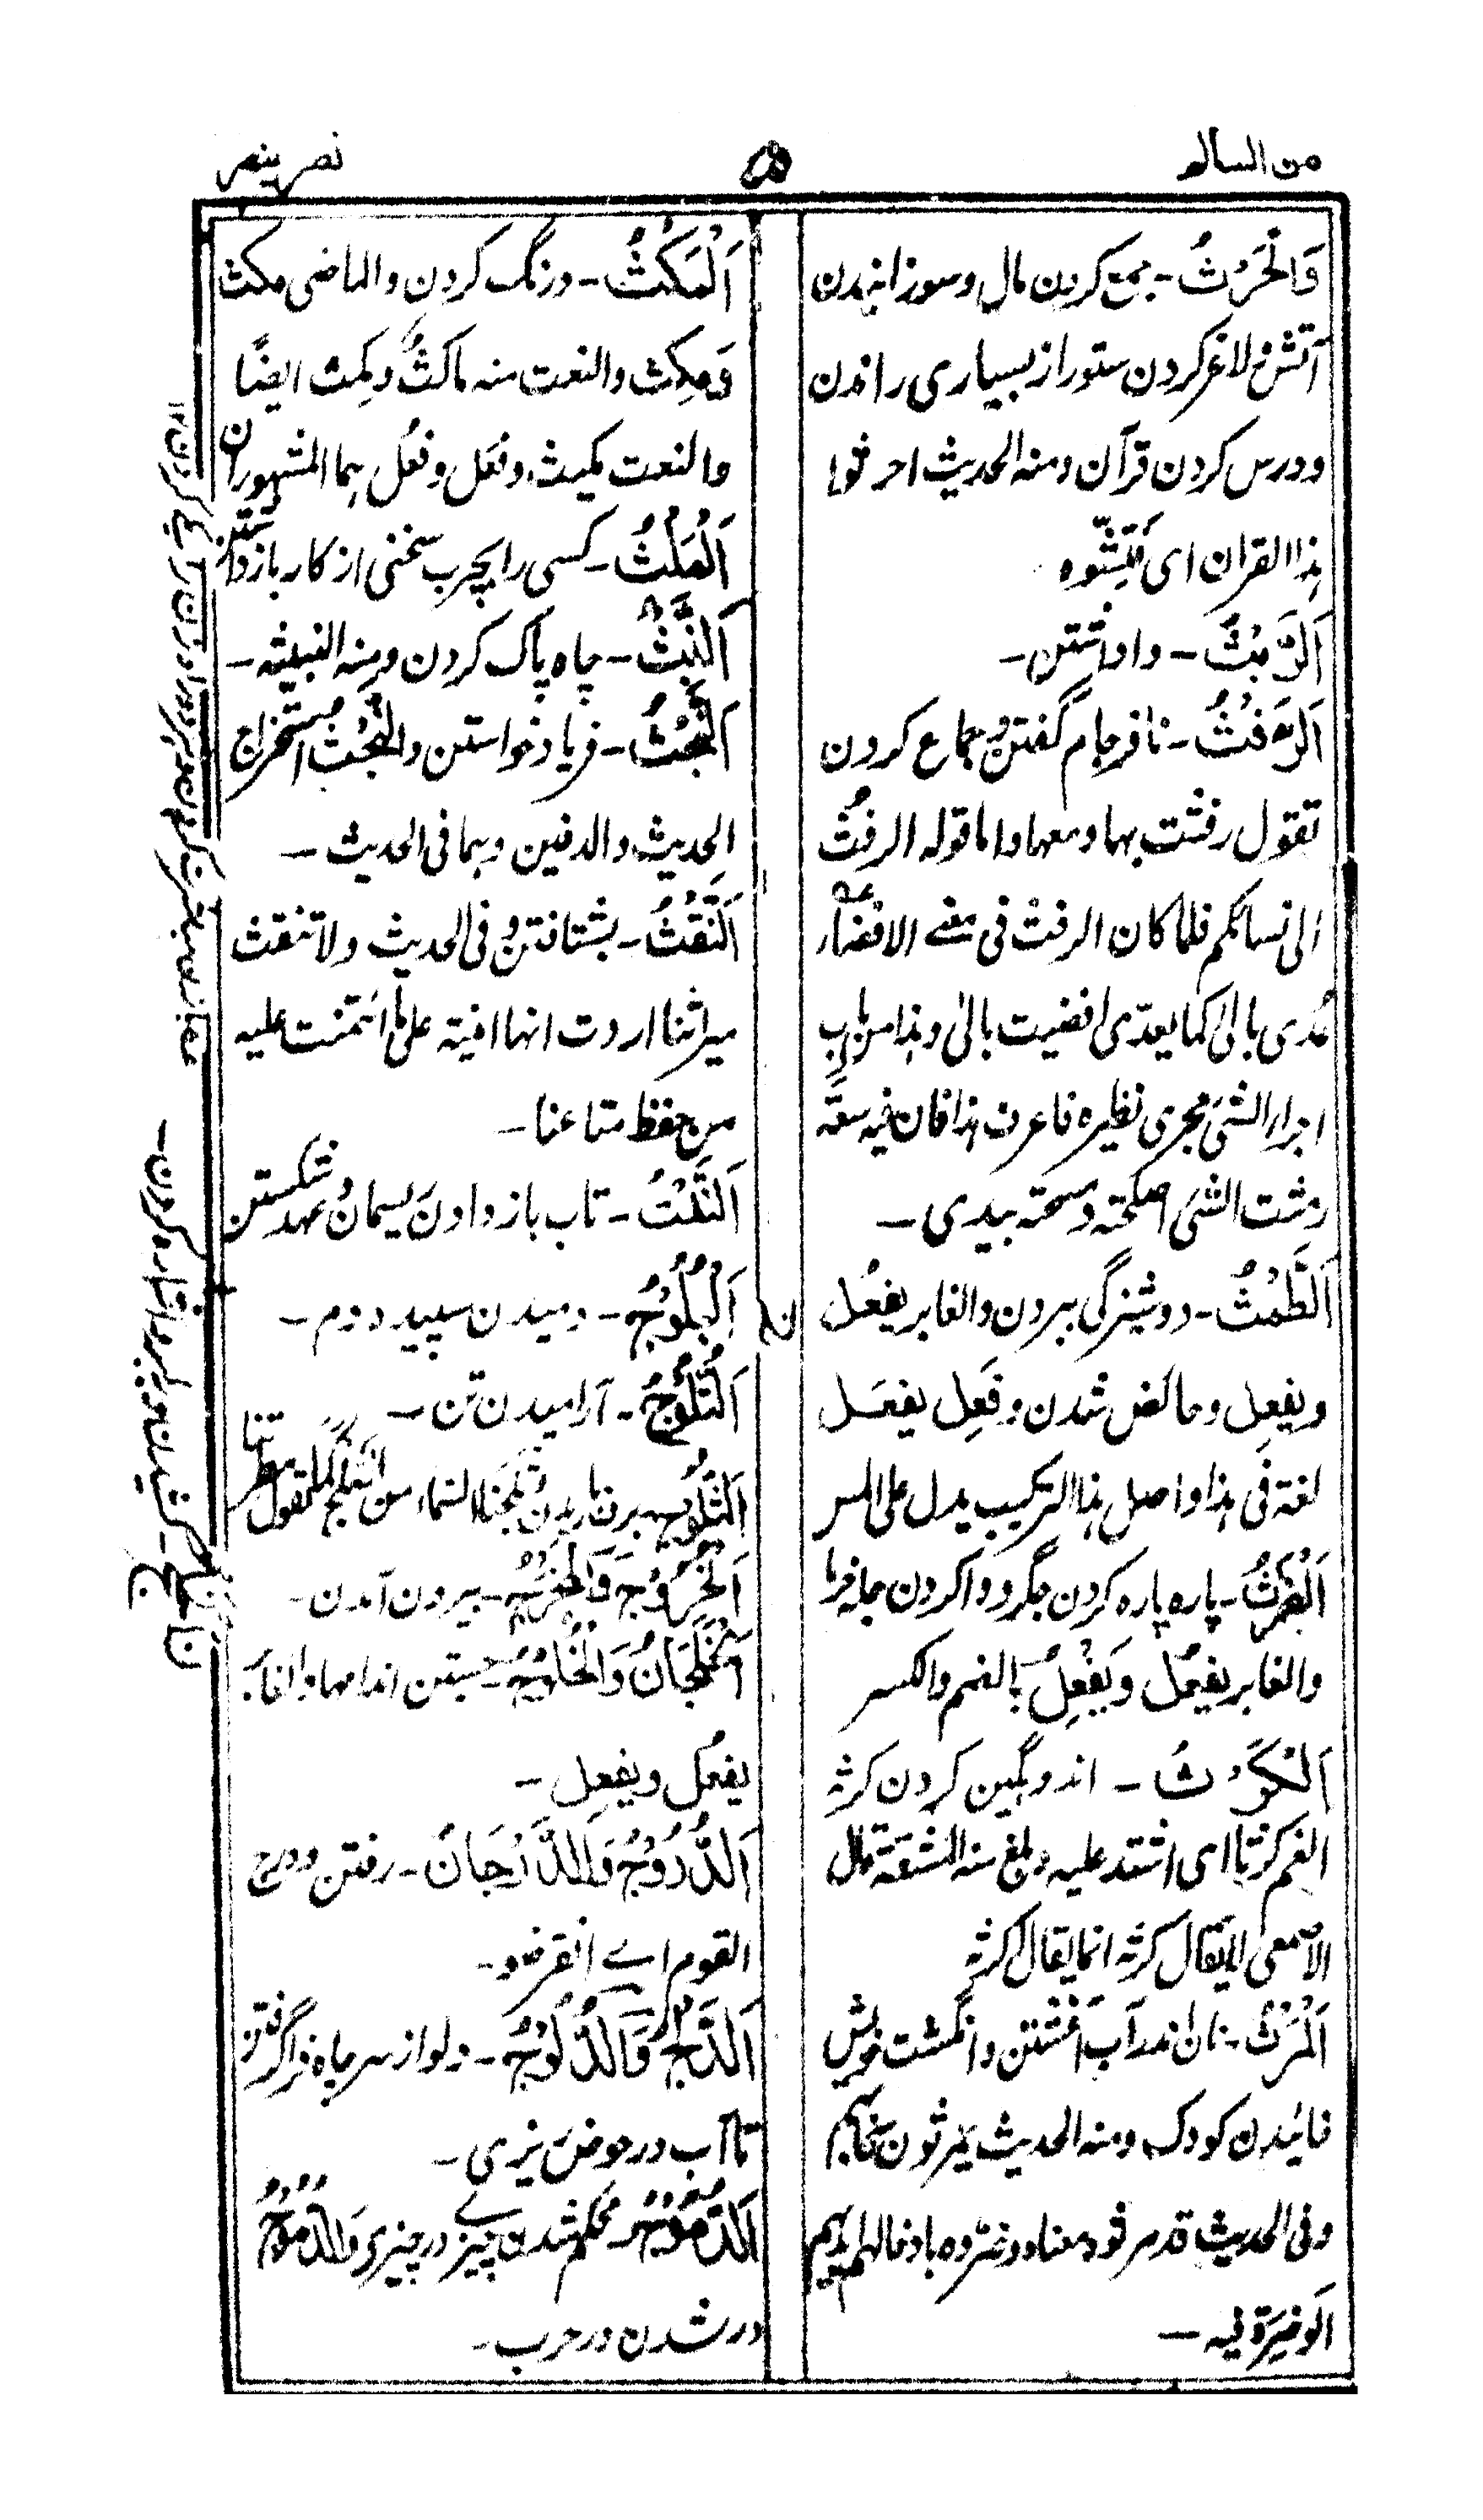 من السالم
نصر ينصر
وَالْحَرْثُ - جمع کردن مال و سوزانیدن
آتش و لاغر کردن ستور از بسیاری راندن
و درس کردن قرآن ومنه الحدیث احرثوا
هذا القران ای فتشوه
اَلرَّبْثُ - وا داشتن -
اَلرَّفْثُ - نافرجام گفتن و جماع کردن
تقول رفثت بها ومعها واما قوله الرفث
الی نسائکم فلما کان الرفث فی معنے الافضاء
عُدی بالیٰ کما یعدّی افضیت بالیٰ وهذا من باب
اجراء الشیٔ مجری نظیره فاعرف هذا فان فیه سعة
رمثت الشیٔ اصلحته ومسحته بیدی -
اَلطَّمْثُ - دوشیزگی ببردن والغابر یفعُل
ویفعِل وحائض شدن وفَعِل یفعَل
لغة فی هذا واصل هذا الترکیب یدل علی المس
اَلْفَرْثُ - پاره پاره کردن جگر و وا کردن جلهٔ خرما
والغابر یفعُل ویَفْعِلُ بالضم والکسر
اَلْکَرْثُ - اندوهگین کردن کرثه
الغم کرثا ای اشتد علیه وبلغ منه المشقة قال
الاصمعی لایقال کرثه انما یقال اکرثه
اَلْمَرْثُ - نان اندر آب آغشتن و انگشت خویش
خائیدن کودک ومنه الحدیث یمرثون سخابهم
وفی الحدیث قد مرثوه معناه وضروه بادخالهم ایدیهم
الوضرة فیه -
اَلْمَکْثُ - درنگ کردن والماضی مکث
وَمکِث والنعت منه ماکثٌ ومکث ایضًا
والنعت مکیث وفعَل وفعُل هما المشهوران
اَلْمَلْثُ - کسی را بچرب سخنی از کار باز داشتن
اَلنَّبْثُ - چاه پاک کردن ومنه النبیثه -
اَلنَّجْثُ - فریاد خواستن والنَّجْثُ استخراج
الحدیث والدفین وهما فی الحدیث -
اَلنَّقْثُ - بشتافتن وفی الحدیث ولا تنقث
میرتنا اردت انها امینه علی ما ائتمنت علیه
من حفظ متاعنا -
اَلنَّکْثُ - تاب باز دادن ریسمان و عهد شکستن
اَلْبُلُوْجُ - دمیدن سپیده دم -
اَلثُّلُوْجُ - آرامیدن تن -
اَلثُّلُوْجُ - برف باریدن ثلجتنا السماء من الثلج کما تقول مطرتنا
اَلْخُرُوْجُ وَالْمَخْرَجُ - بیرون آمدن -
اَلْخَلَجَانُ وَالْخُلُوْجُ - جستن اندامها والغابر
یفعُل ویفعِل -
اَلدُّرُوْجُ وَالدَّرَجَانُ - رفتن ودرج
القوم اے انقرضو -
اَلدَّلْجُ وَالدُّلُوْجُ - دلو از سر چاه فراگرفتن
تا آب در حوض ریزی -
اَلدُّمُوْجُ - محکم شدن چیزے در چیزی وَالدُّمُوْجُ
در شدن در حرب -